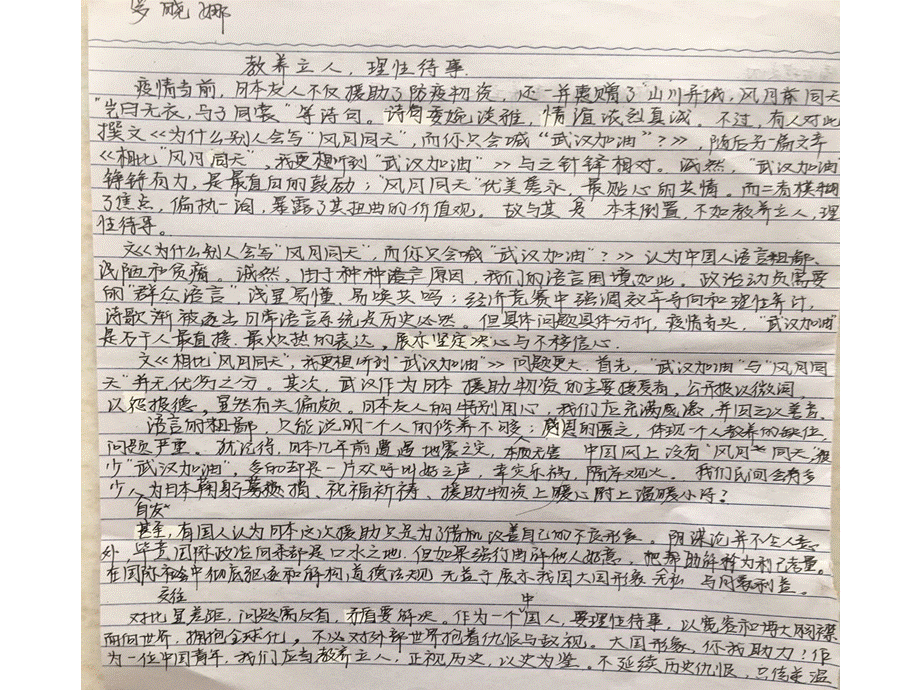 罗晓娜
教养立人，理性待事.
疫情当前，日本友人不仅援助了防疫物资，还一并惠赠了"山川异域，风月同天"
"岂曰无衣，与子同裳"等诗句。诗句委婉淡雅，情谊浓烈真诚。不过，有人对此
撰文《为什么别人会写"风月同天"，而你只会喊"武汉加油"？》，随后另一篇文章
《相比"风月同天"，我更想听到"武汉加油"》与之针锋相对。诚然，"武汉加油"
铮铮有力，是最直白的鼓励；"风月同天"优美隽永，最贴心的共情。而二者模糊
了焦点，偏执一泊，暴露了其扭曲的价值观。故与其 本末倒置，不如教养立人，理
性待事。
文《为什么别人会写"风月同天"，而你只会喊"武汉加油"？》认为中国人语言粗鄙、
浅陋和贫瘠。诚然，由于种种语言原因，我们的语言困境如此。政治动员需要
的"群众语言"，浅显易懂，易唤共鸣；经济竞赛中强调效率导向和理性算计，
诗歌渐被逐出日常语言系统是历史必然。但具体问题具体分析，疫情当头，"武汉加油"
是否于人最直接、最炽热的表达，展示坚定决心与不移信心.
文《相比"风月同天"，我更想听到"武汉加油"》问题更大.首先，"武汉加油"与"风月同
天"并无优劣之分。其次，武汉作为日本援助物资的主要接受者，公开报以微词，
以怨报德，显然有失偏颇。日本友人的特别用心，我们应充满感激，并回之以善意.
语言的粗鄙，只能说明一个人的修养不够；感恩的匮乏，体现一个人教养的缺位，
问题严重。犹记得，日本几年前遭遇地震之灾，中国网上没有"风月同天"，很
少"武汉加油"，多的却是一片欢呼叫好之声，幸灾乐祸，隔岸观火。我们民间会有多
少人为日本鞠躬募捐、祝福祈祷、援助物资上暖心附上温暖小诗？
自发
甚至，有国人认为日本这次援助只是为了借机改善自己的不良形象。阴谋论并不令人意
外，毕竟国际政治向来都是口水之地，但如果强行曲解他人好意，把帮助解释为利己考量。
在国际社会中彻底驱逐和解构道德法规，无益于展示我国大国形象，无私 与国家利益。
交往
中
对比显差距，问题需反省，矛盾要解决。作为一个国人，要理性待事，以宽容和博大胸襟
面向世界，拥抱全球化。不必对外部世界抱着仇恨与敌视。大国形象，你我助力！作
为一位中国青年，我们应当教养立人，正视历史，以史为鉴。不延续历史仇恨，只传递温